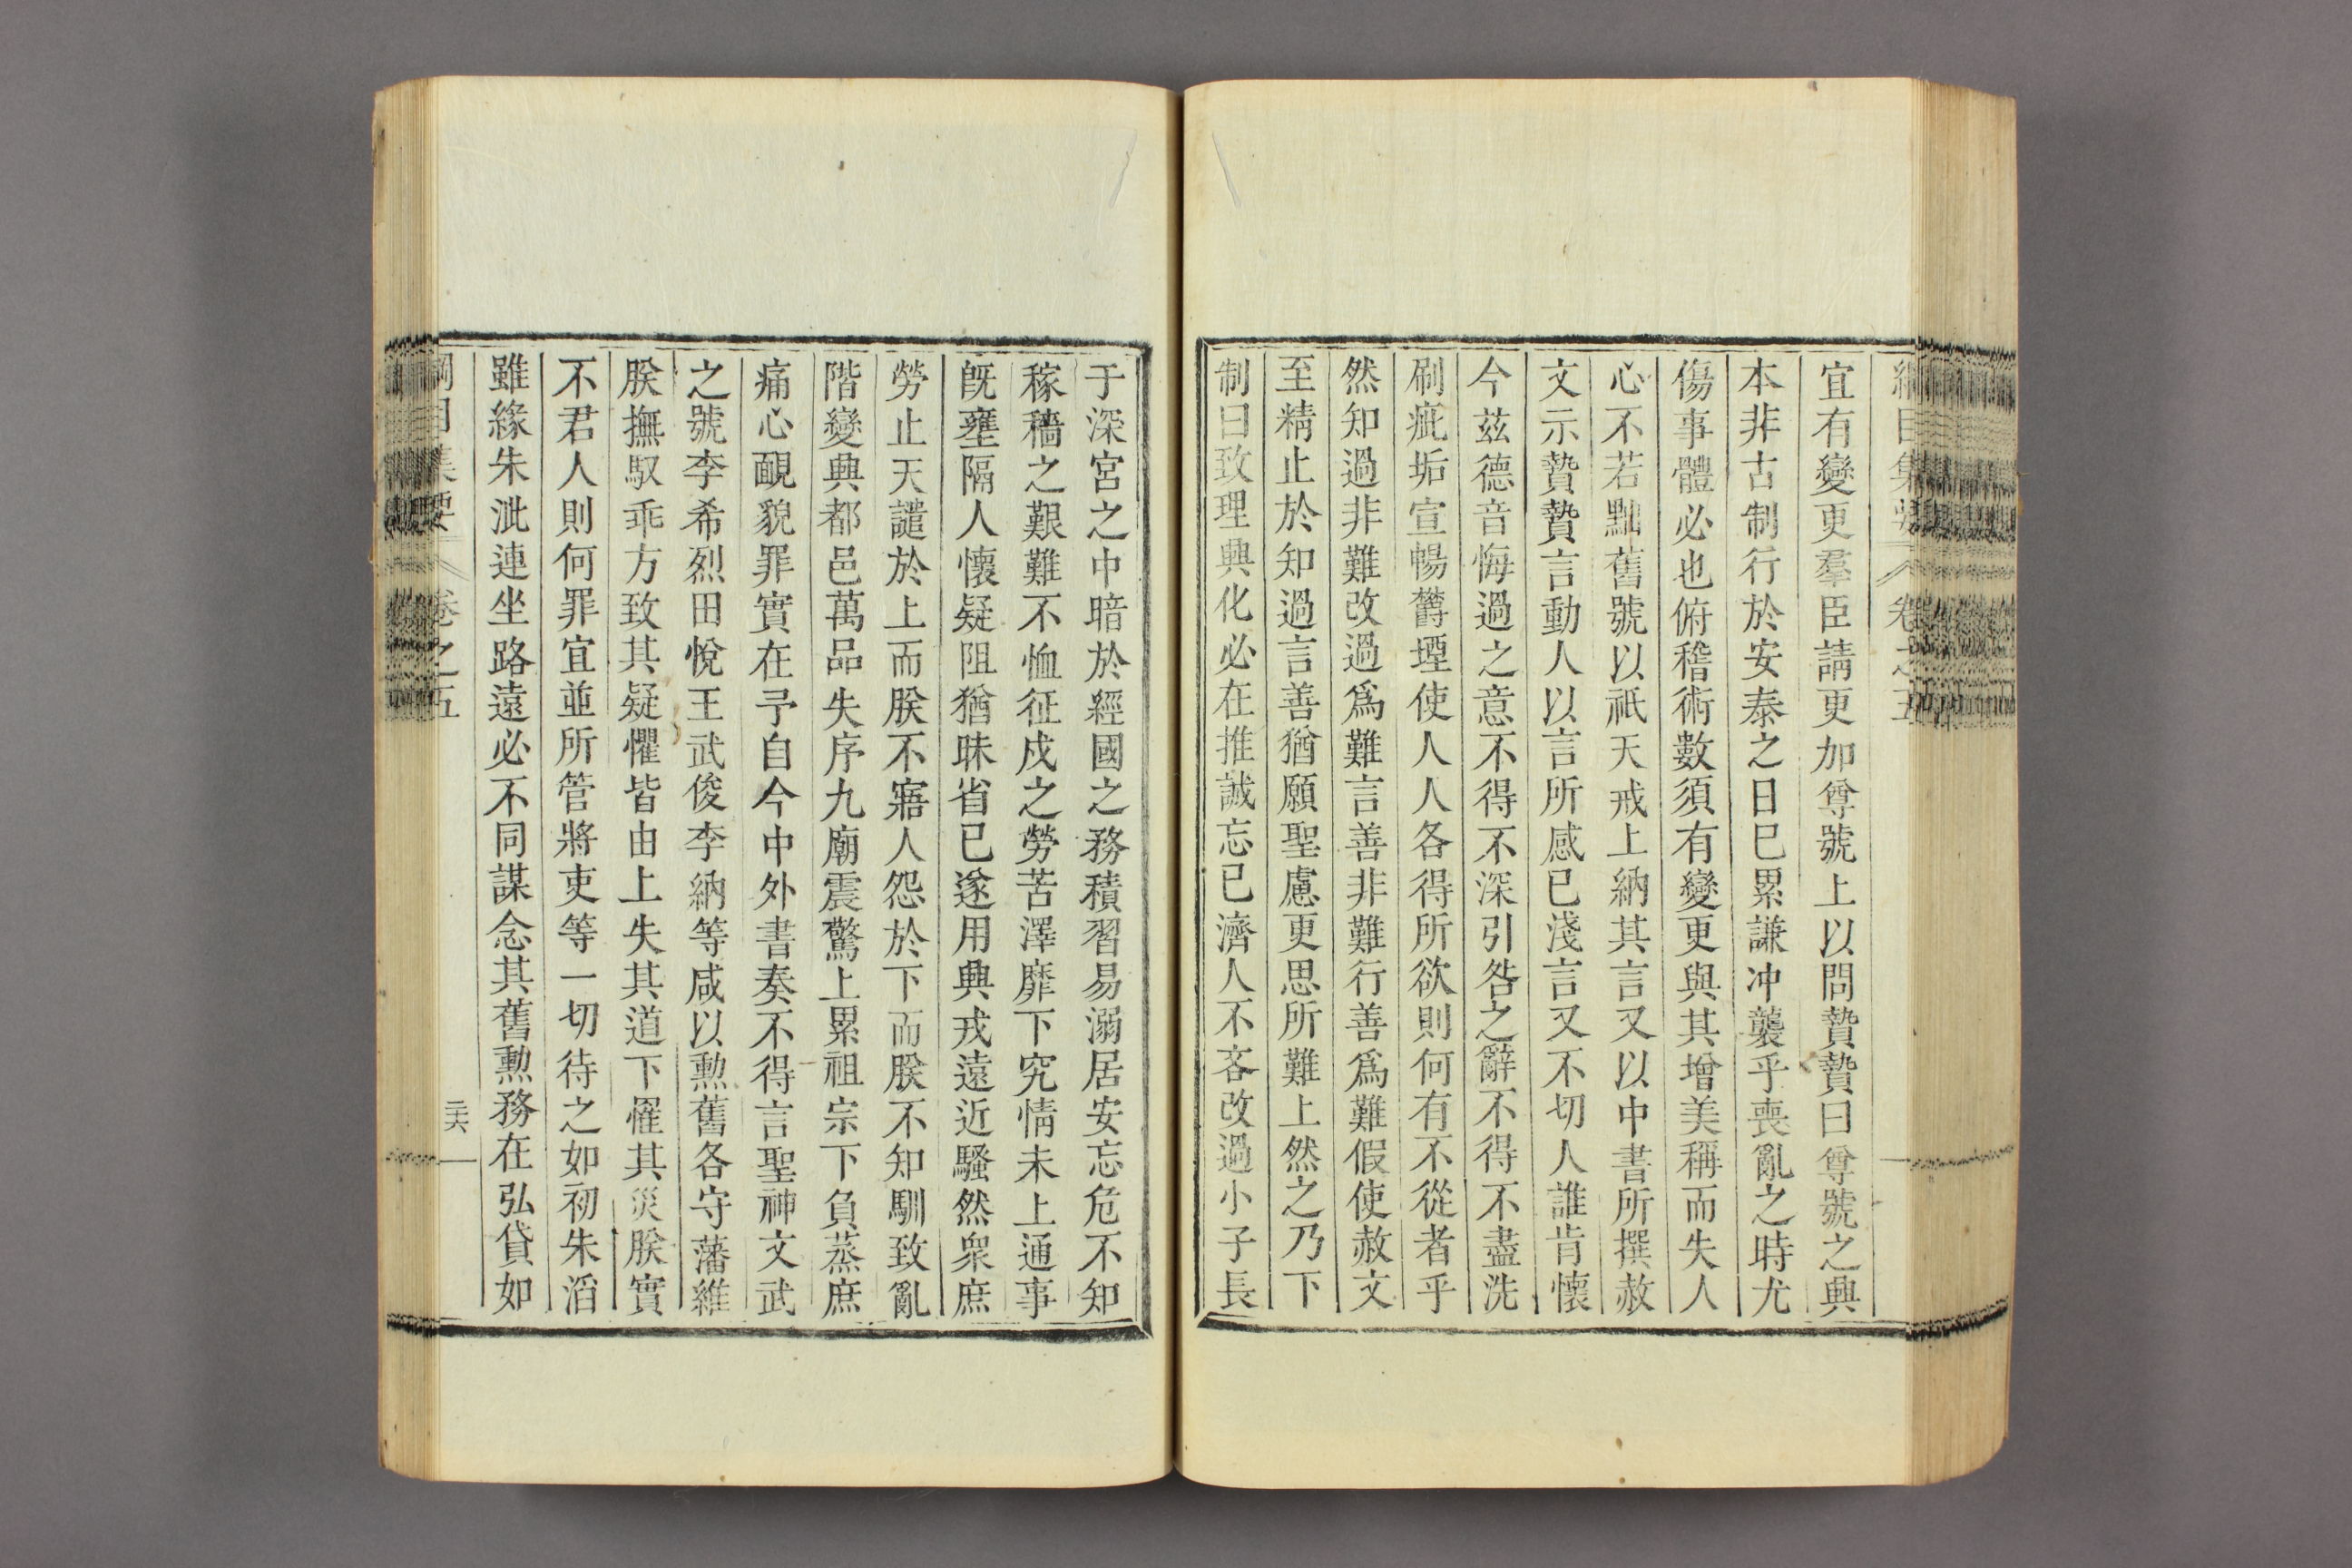 宜有變更羣臣請更加尊號上以問贄贄曰尊號之典
本非古制行於安泰之日巳累謙冲襲乎喪亂之時尤
傷事體必也俯稽術數須有變更與其增美稱而失人
心不若黜舊號以祇天戒上納其言又以中書所撰赦
文示贄贄言動人以言所感巳淺言又不切人誰肯懷
今茲德音悔過之意不得不深引咎之辭不得不盡洗
刷疵垢宣暢鬱堙使人人各得所欲則何有不從者乎
然知過非難改過爲難言善非難行善爲難假使赦文
至精止於知過言善猶願聖慮更思所難上然之乃下
制曰致理興化必在推誠忘己濟人不吝改過小子長
于深宮之中暗於經國之務積習易溺居安忘危不知
稼穡之艱難不恤征戍之勞苦澤靡下究情未上通事
旣壅隔人懷疑阻猶昧省己遂用興戎遠近騷然衆庶
勞止天譴於上而朕不寤人怨於下而朕不知馴致亂
階變興都邑萬品失序九廟震驚上累祖宗下負蒸庶
痛心靦貌罪實在予自今中外書奏不得言聖神文武
之號李希烈田悅王武俊李納等咸以勲舊各守藩維
朕撫馭乖方致其疑懼皆由上失其道下罹其災朕實
不君人則何罪宜並所管將吏等一切待之如初朱滔
雖緣朱泚連坐路遠必不同謀念其舊勲務在弘貸如
卷之五